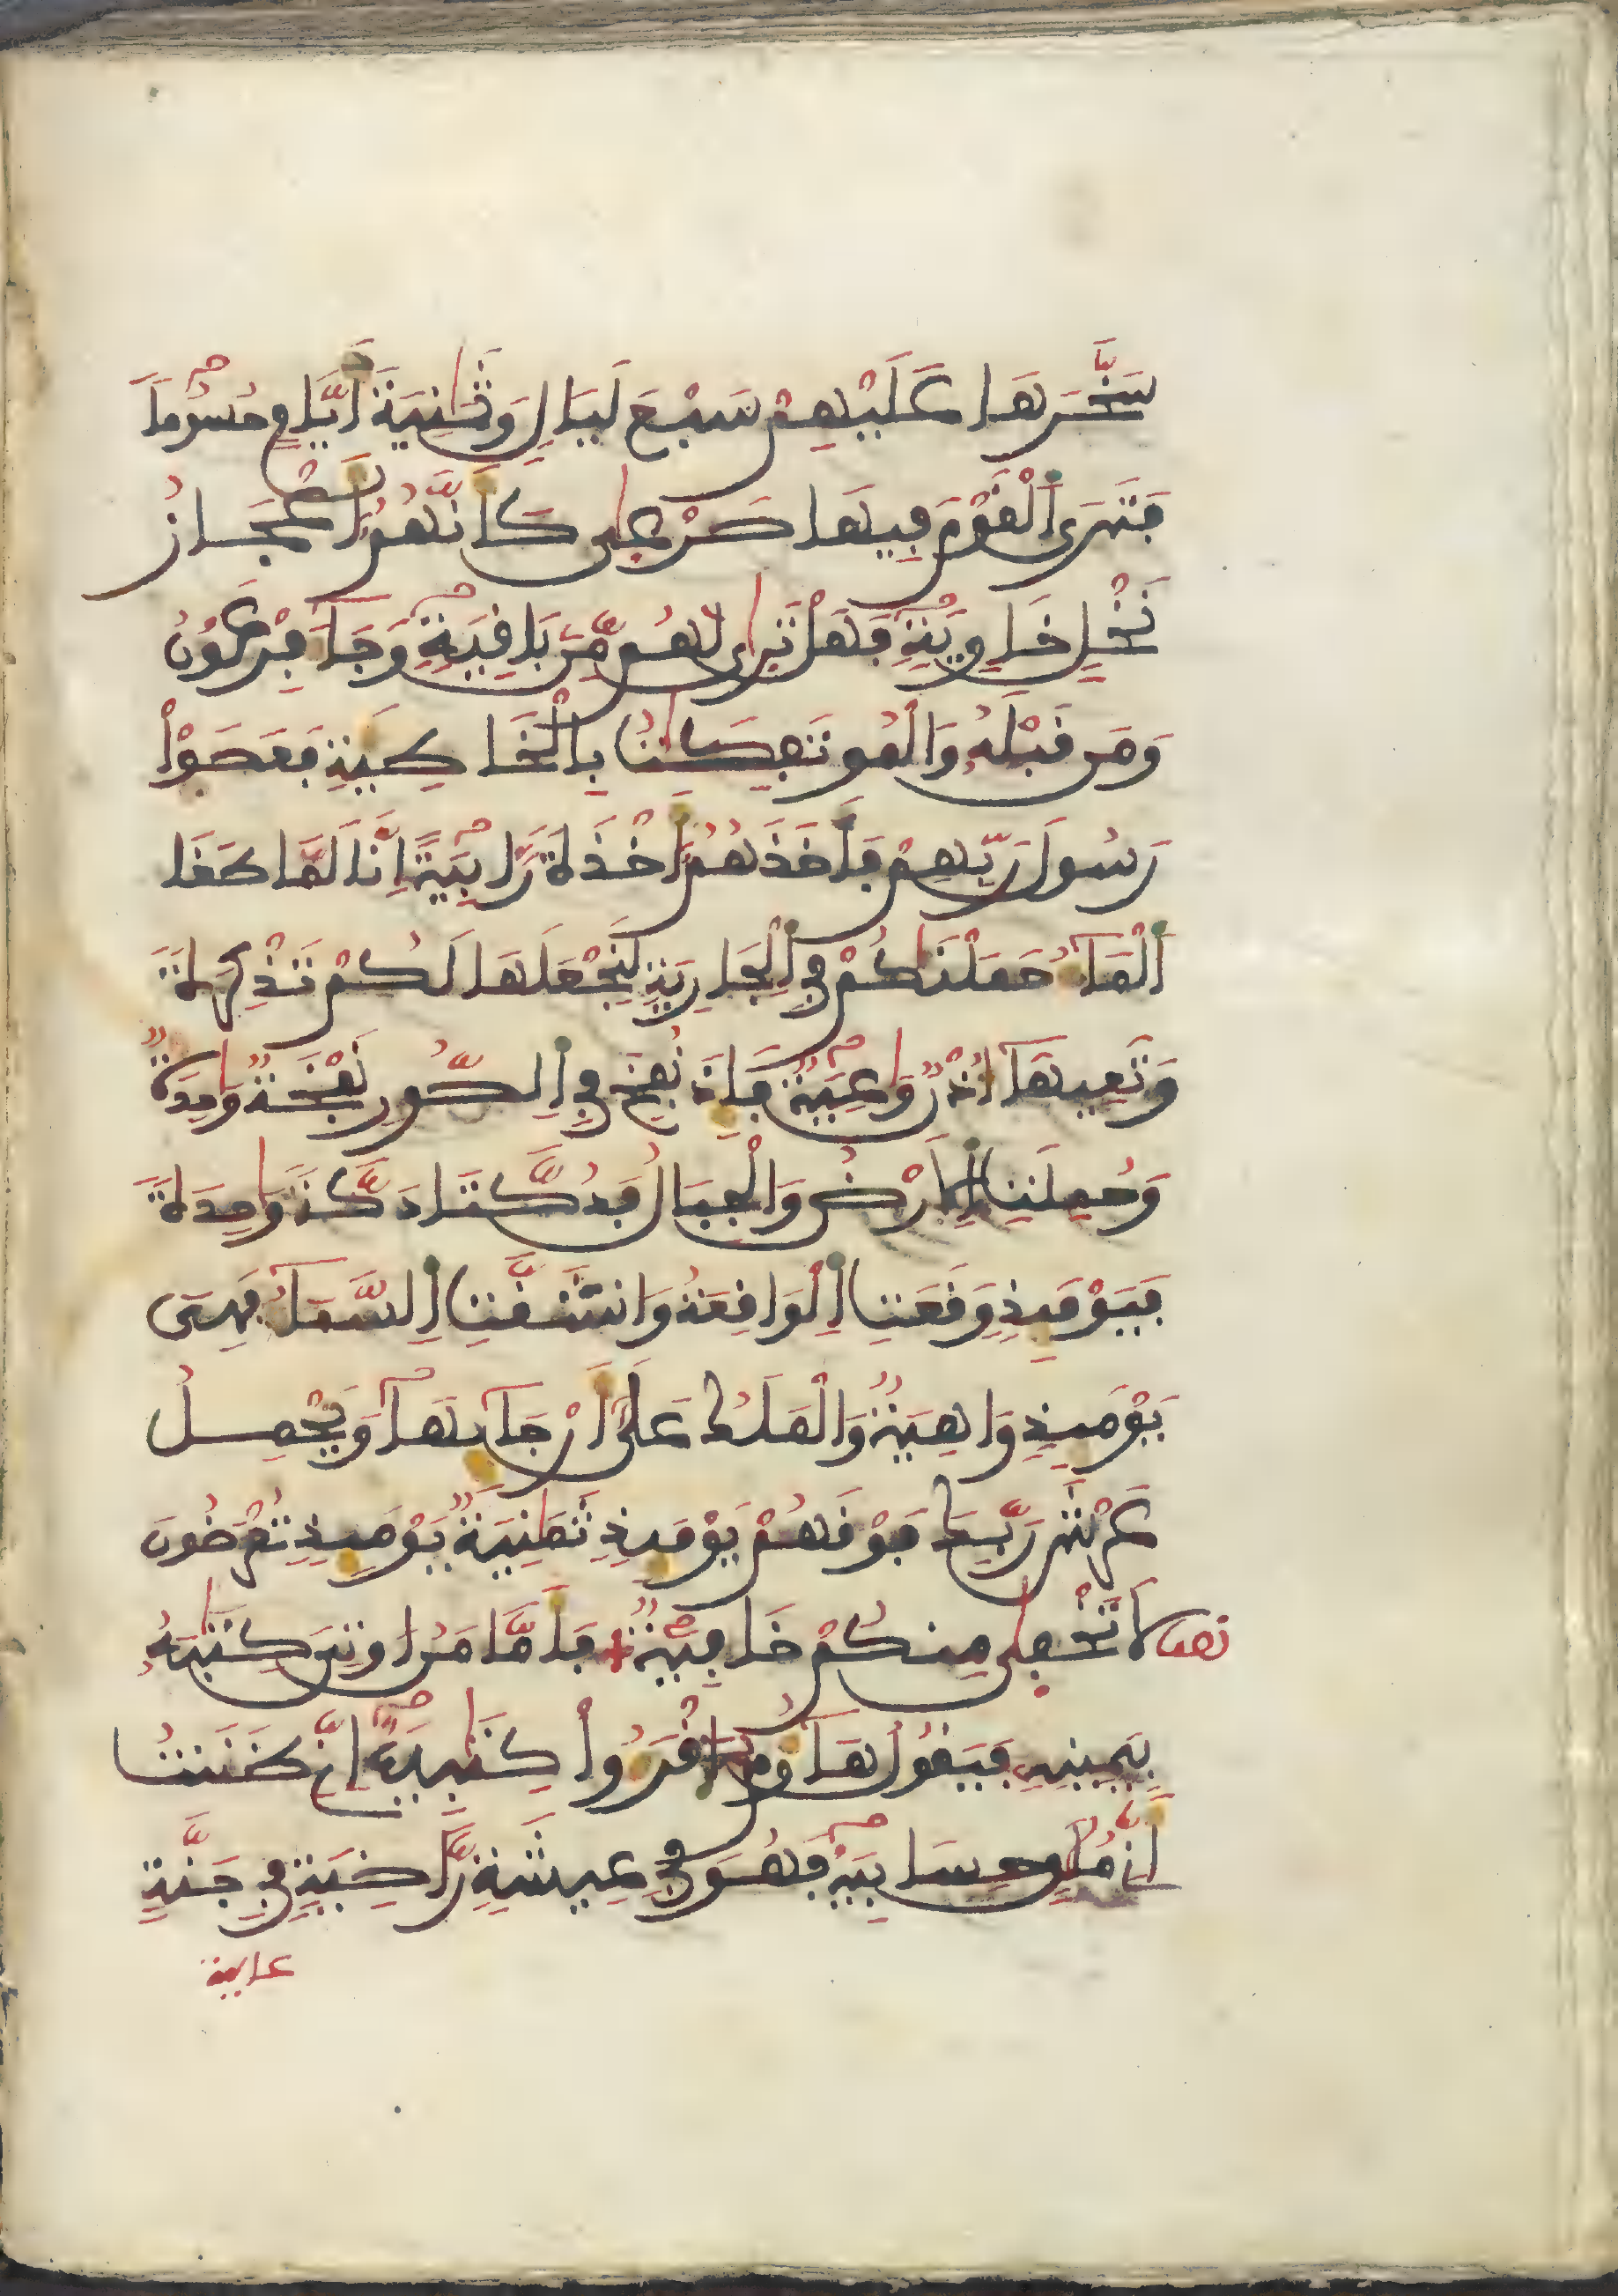 سَخَّرَهَا عَلَيْهِمْ سَبْعَ لَيَالٍ وَثَمَٰنِيَةَ أَيَّامٍ حُسُوماً
فَتَرَى اَ۬لْقَوْمَ فِيهَا صَرْعٜىٰ كَأَنَّهُمُۥٓ أَعْجَازُ
نَخْلٍ خَاوِيَةٍ فَهَلْ تَر۪ىٰ لَهُم مِّنۢ بَاقِيَةٍ وَجَآءَ فِرْعَوْنُ
وَمَن قَبْلَهُۥ وَالْمُوتَفِكَٰتُ بِالْخَاطِيَةِ فَعَصَوْاْ
رَسُولَ رَبِّهِمْ فَأَخَذَهُمُۥٓ أَخْذَةً رَّابِيَةً اِنَّا لَمَّا طَغَا
اَ۬لْمَآءُ حَمَلْنَٰكُمْ فِي اِ۬لْجَارِيَةِ لِنَجْعَلَهَا لَكُمْ تَذْكِرَةً
وَتَعِيَهَآ أُذْنٌ وَٰعِيَةٌ فَإِذَا نُفِخَ فِي اِ۬لصُّورِ نَفْخَةٌ وَٰحِدَةٌ
وَحُمِلَتِ اِ۬لَارْضُ وَالْجِبَالُ فَدُكَّتَا دَكَّةً وَٰحِدَةً
فَيَوْمَئِذٍ وَقَعَتِ اِ۬لْوَاقِعَةُ وَانشَقَّتِ اِ۬لسَّمَآءُ فَهِيَ
يَوْمَئِذٍ وَاهِيَةٌ وَالْمَلَكُ عَلَىٰٓ أَرْجَآئِهَا وَيَحْمِلُ
عَرْشَ رَبِّكَ فَوْقَهُمْ يَوْمَئِذٍ ثَمَٰنِيَةٌ يَوْمَئِذٍ تُعْرَضُونَ
لَا تَخْفٜىٰ مِنكُمْ خَافِيَةٌ فَأَمَّا مَنُ ا۟وتِيَ كِتَٰبَهُۥ
بِيَمِينِهِۦ فَيَقُولُ هَآؤُمُ اُ۪قْرَءُواْ كِتَٰبِيَهْ إِنِّي ظَنَنتُ
أَنِّي مُلَٰقٍ حِسَابِيَهْ فَهُوَ فِي عِيشَةٍ رَّاضِيَةٍ فِي جَنَّةٍ
عالية